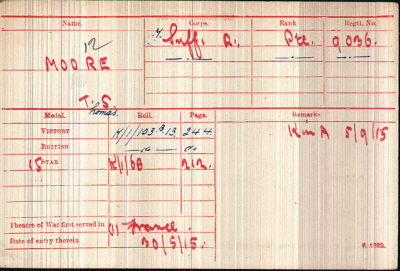 Name. Corps. Rank Regtl. No.
12
MOORE 4. Suff. R. Pte. 9036.
T.S.
Thomas.
Medal. Roll. Page. Remarks
VICTORY K/1/103.B.13. 244. K in A 5/9/15
BRITISH —do— do
15 STAR K/1/6B 212.
Theatre of War first served in (1) France.
Date of entry therein 30/5/15.
K. 1380.